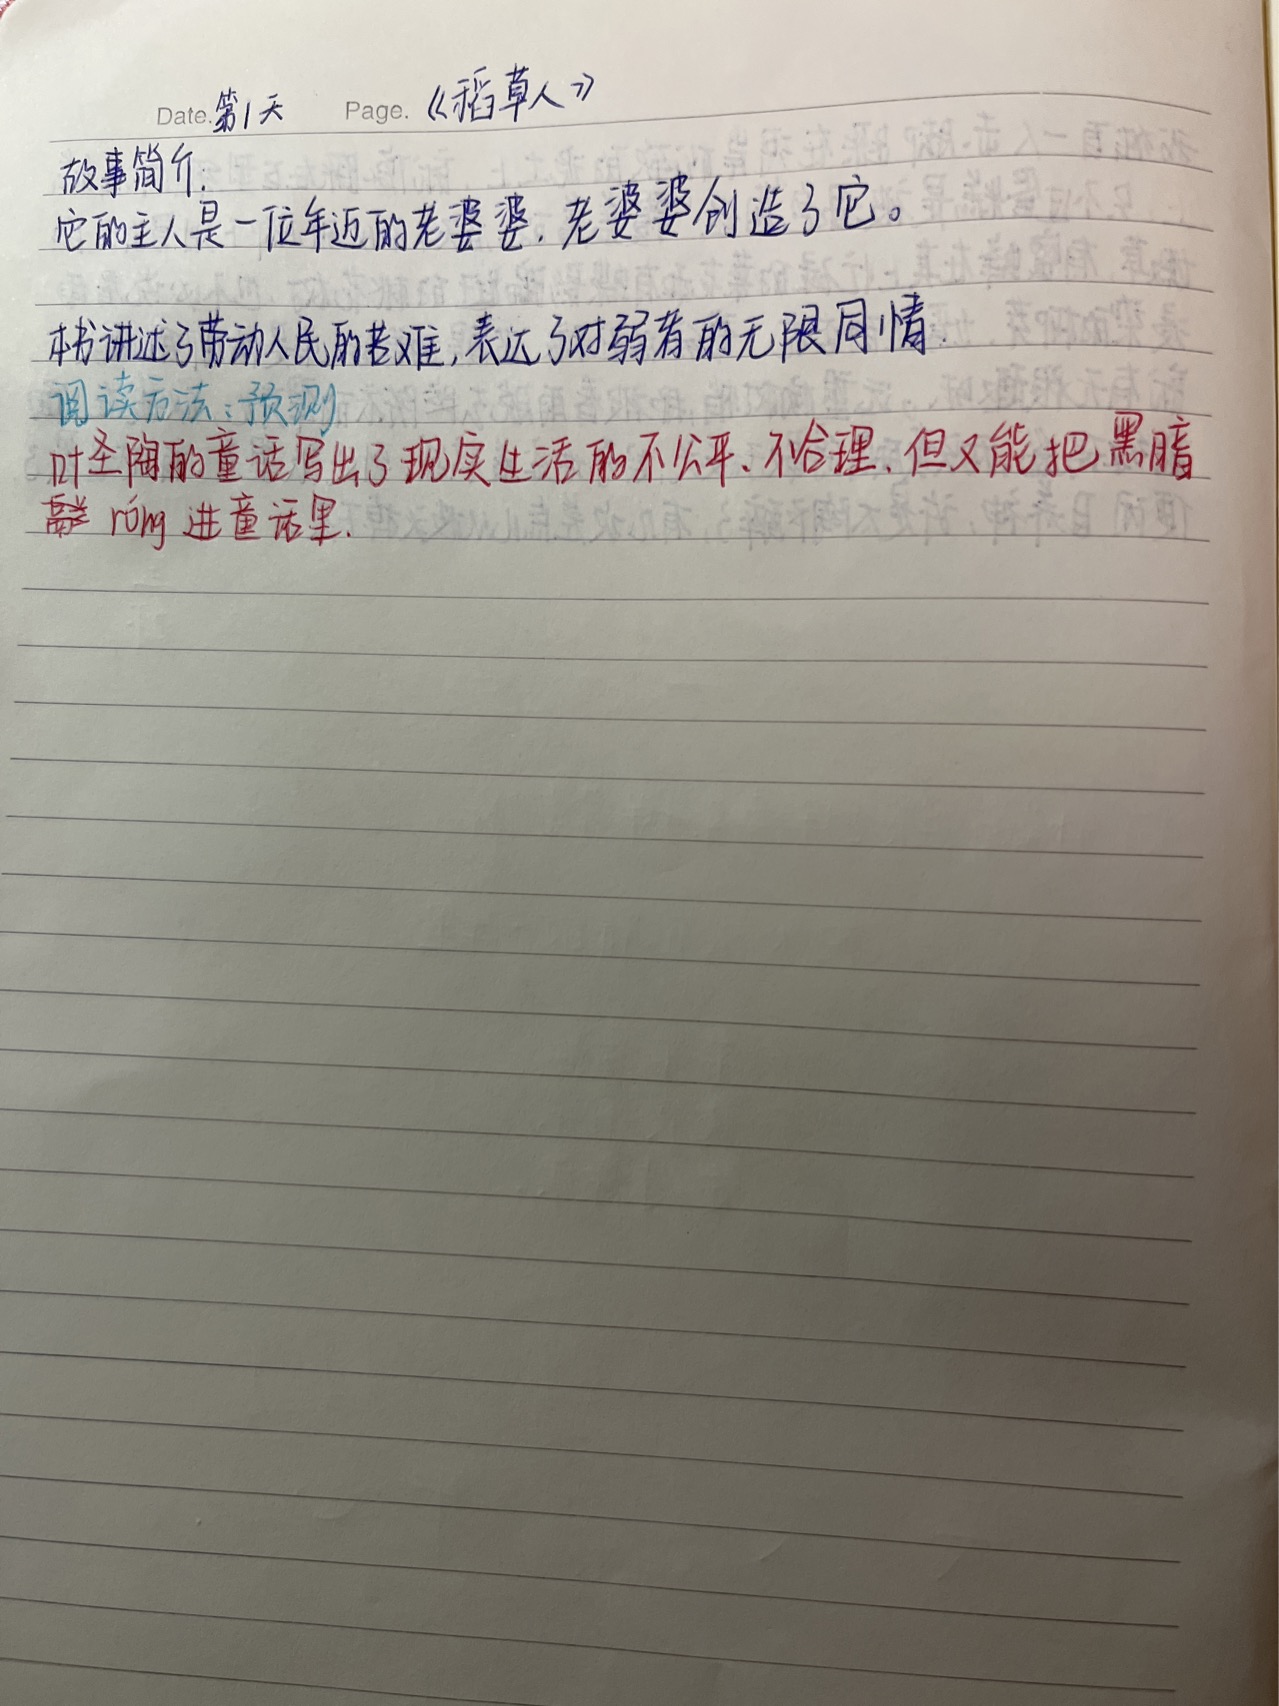 Date.第1天 Page.《稻草人》
故事简介.
它的主人是一位年迈的老婆婆.老婆婆创造了它。
本书讲述了劳动人民的苦难,表达了对弱者的无限同情.
阅读方法:预测
叶圣陶的童话写出了现实生活的不公平、不合理.但又能把黑暗
róng 进童话里.